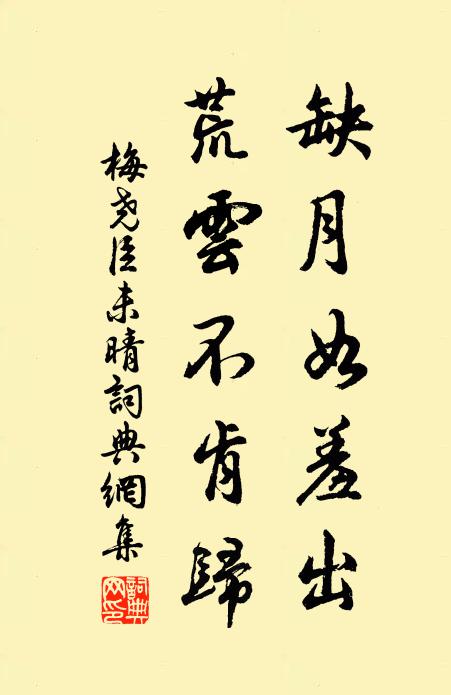 缺月如羞出
荒雲不肯歸
梅堯臣未晴詞典網集
詞典網印